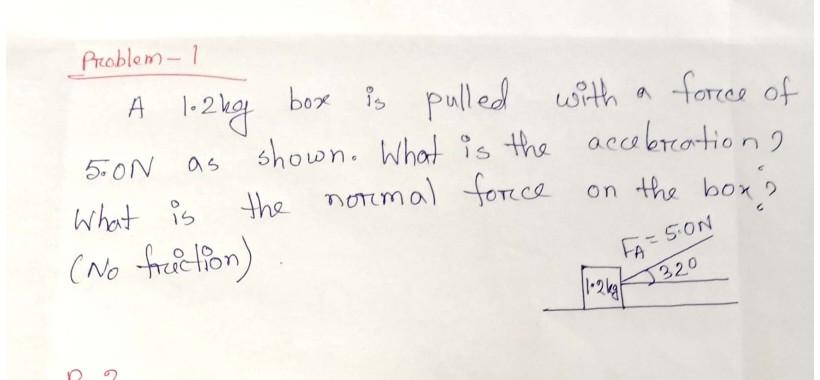 Problem - 1
A 1.2kg box is pulled with a force of
5.0N as shown. What is the acceleration?
What is the normal force on the box?
(No friction)
FA = 5.0N
32°
1.2kg